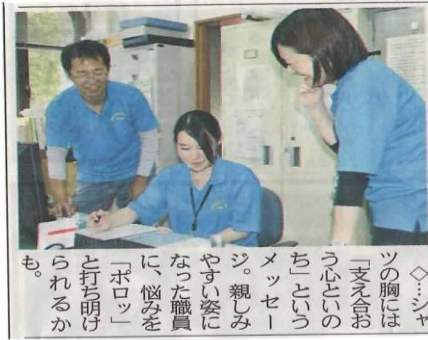 ◇…シャ
ツの胸には
「支え合お
う心といの
ち」という
メッセー
ジ。親しみ
やすい姿に
なった職員
に、悩みを
「ポロッ」
と打ち明け
られるか
も。